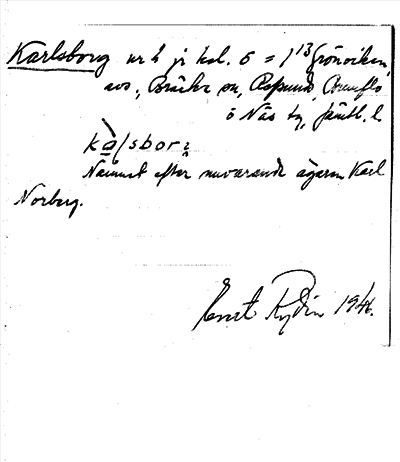 Karlsborg nr 2 jr kol. 6 = 1¹³ Grönviken,
avs., Bräcke sn, Refsund, Brunflo
o Näs tg, Jämtl. l.
ka̱lsbor
Namnet efter nuvarande ägaren Karl
Norberg.
Ernst Rydin 1946.